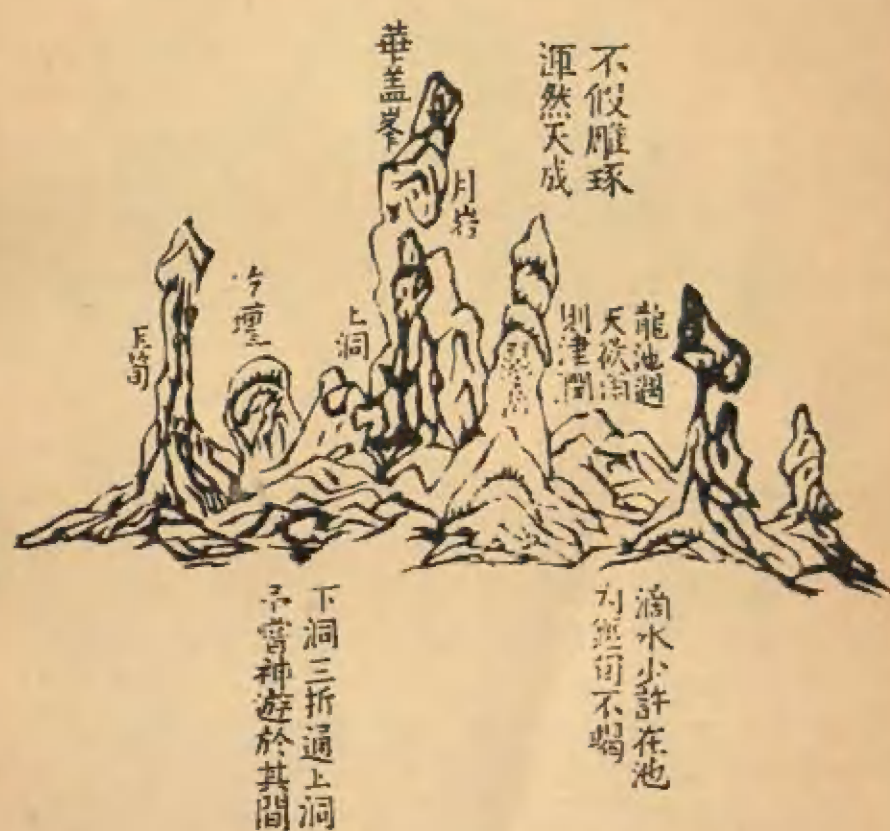 不假雕琢
渾然天成
華盖峯
月岩
龍池遇
天欲雨
則津潤
上洞
壇
玉筍
滴水少許在池
內經旬不竭
下洞三折通上洞
予嘗神遊於其間